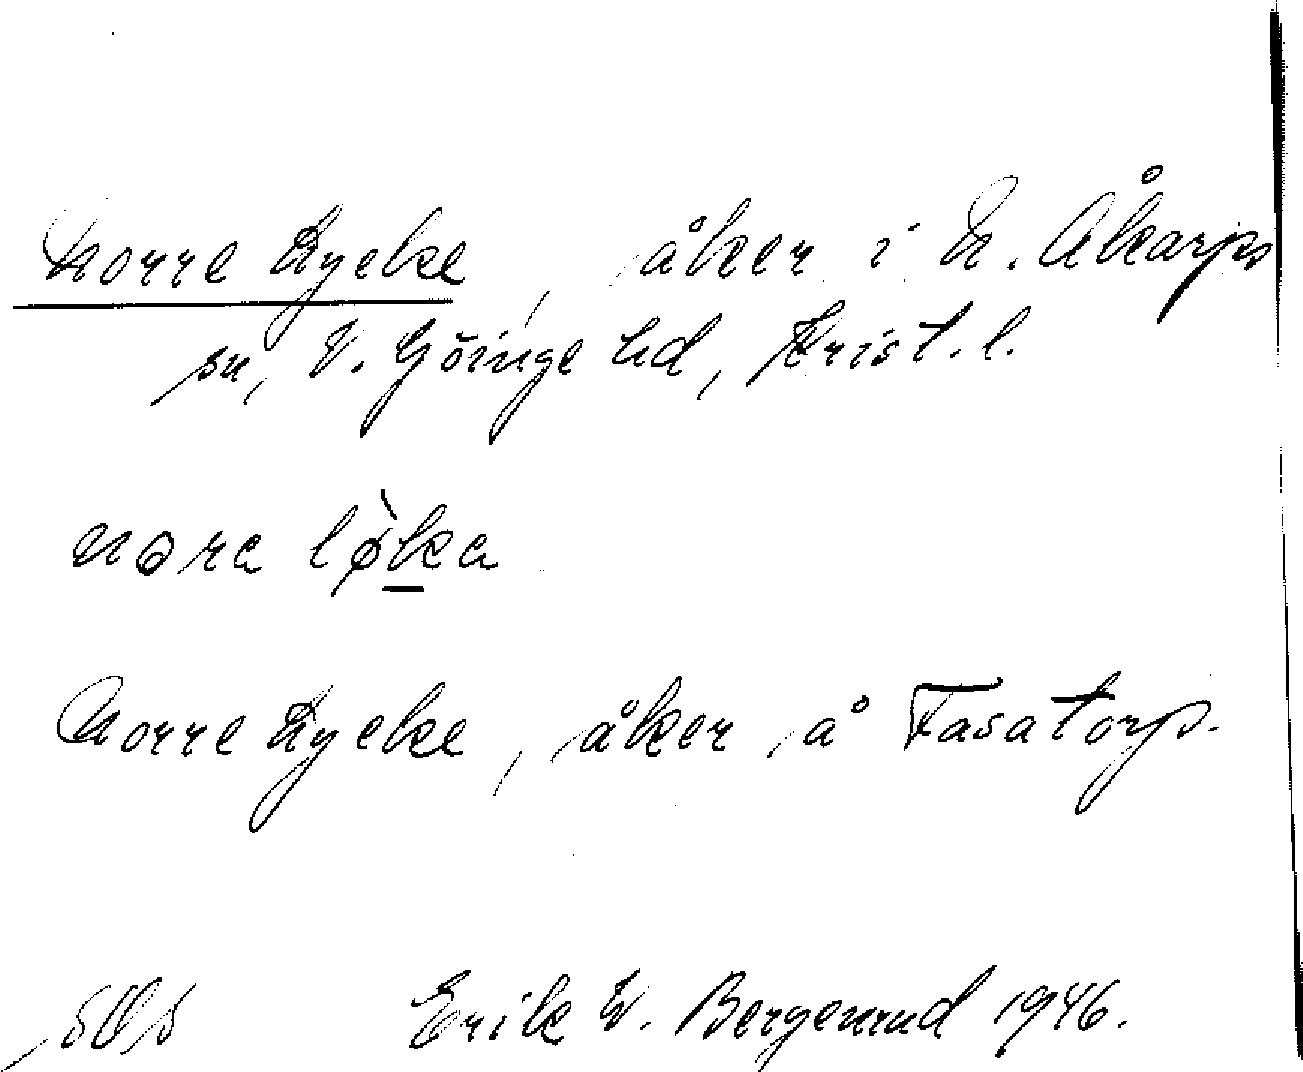 Norre Lycke, åker i N. Åkarps
sn, V. Göinge hd, Krist. l.
nora lø̀ka
Norre Lycke, åker å Fasatorp.
Erik W. Bergenrud 1946.